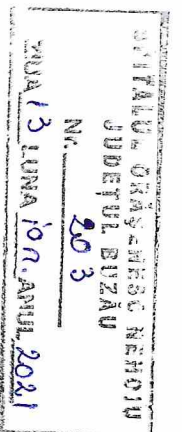 SPITALUL ORĂŞENESC NEHOIU
JUDEŢUL BUZĂU
Nr. 203
ZIUA 13 LUNA ian. ANUL 2021